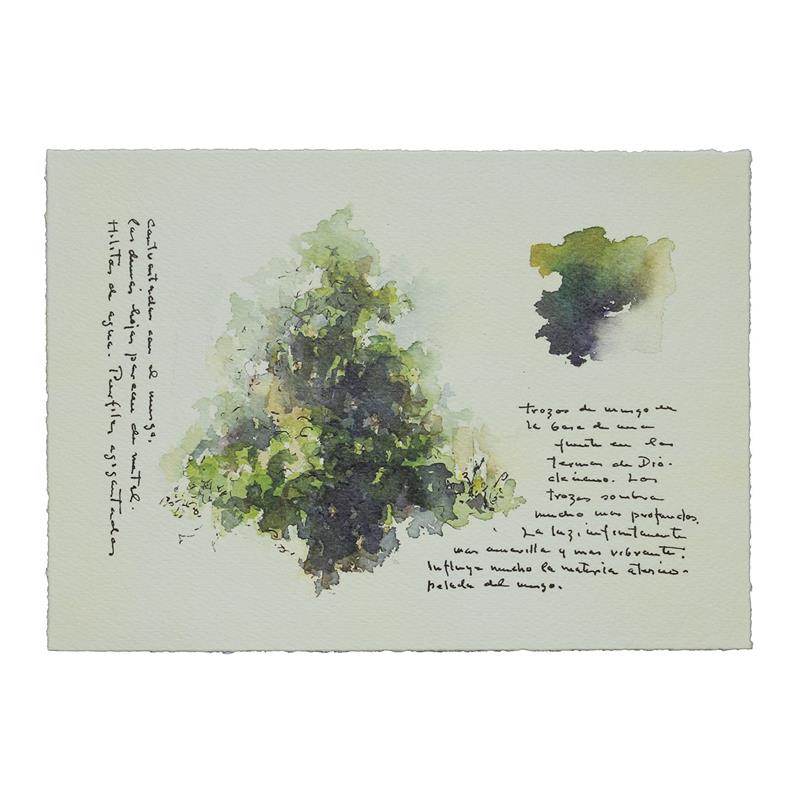 Contrastadas con el musgo,
las demás hojas parecen de metal.
Hilitos de agua. Perfiles agigantados
trozos de musgo en
la base de una
fuente en las
termas de Dio-
cleciano. Los
trozos sombra
mucho mas profundos.
La luz, infinitamente
mas amarilla y mas vibrante.
Influye mucho la materia atercio-
pelada del musgo.